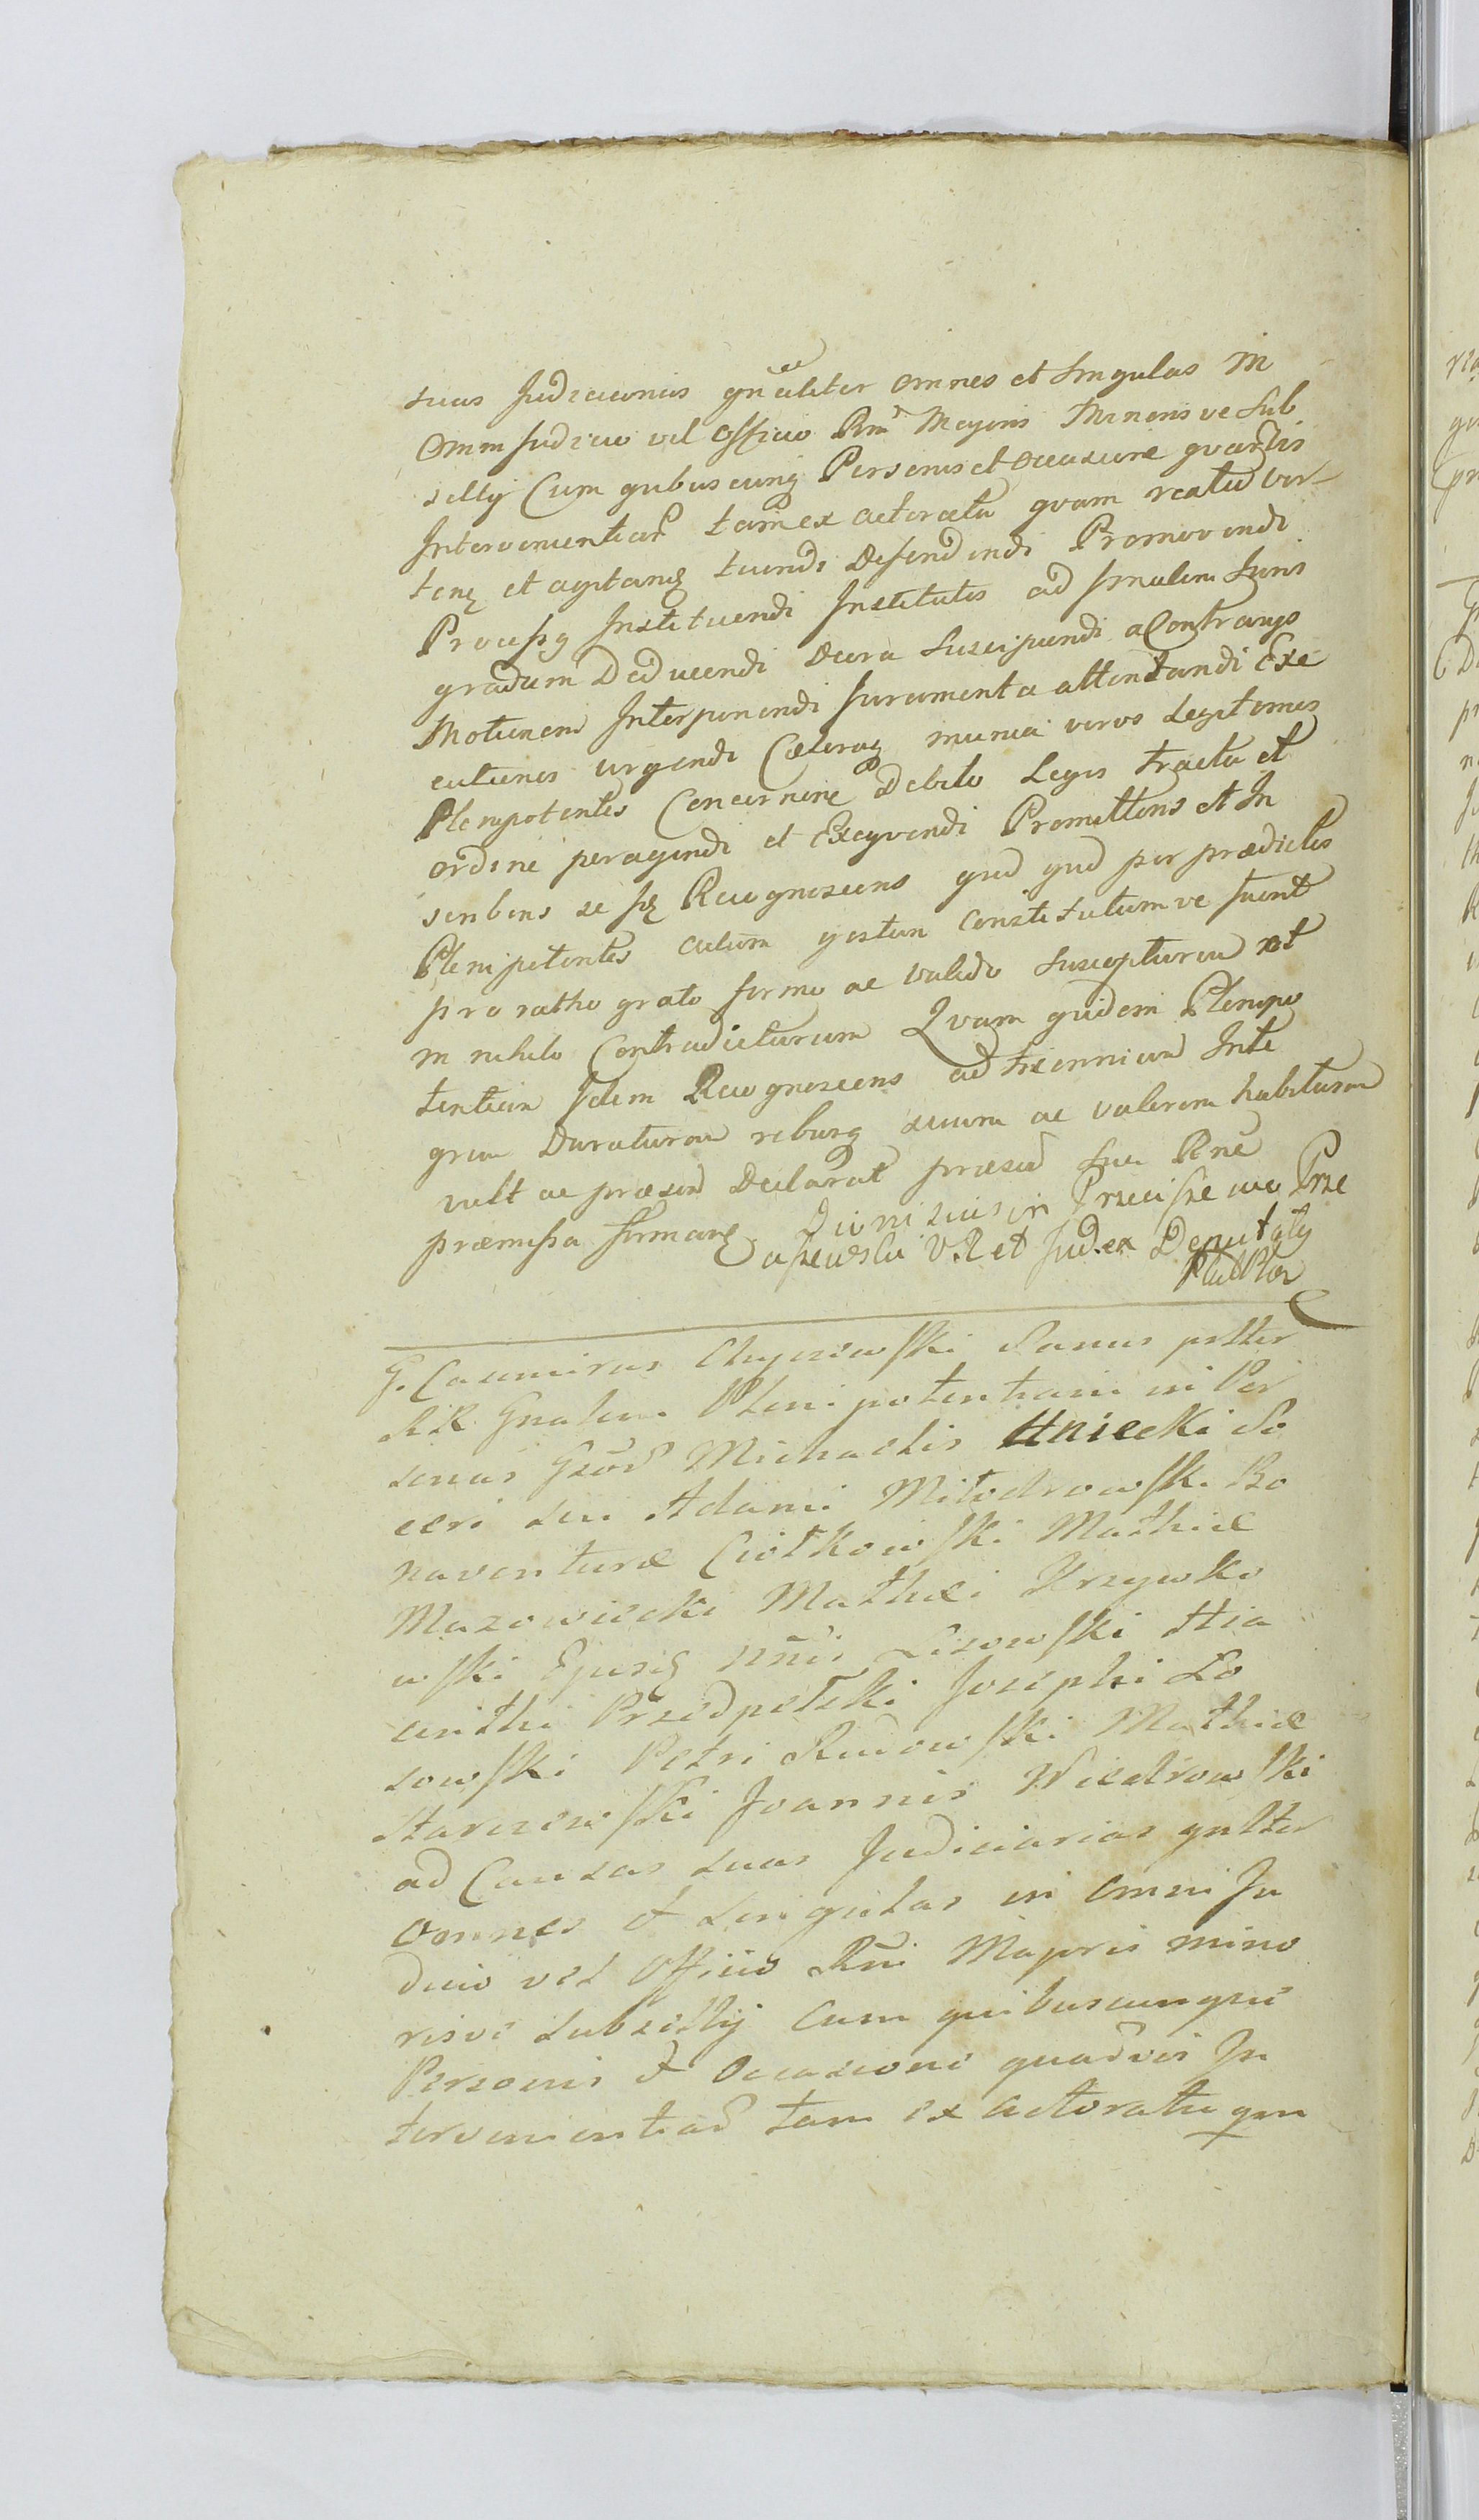 suas Judiciarias gn̄aliter omnes et singulas in
omni Judicio vel Officio Rni Majoris Minorisve Sub
sellij Cum quibuscunq Personis et occasione quavis
Intervenientiae tam ex actoratu quam reatu ver
tenq et agitanq tuendi Defendendi Promovendi
Processq Instituendi Institutos ad finalem Juris
gradum Deducendi Decra Suscipiendi a Contrarijs
Motionem Interponendi Juramenta attentandi Exe
cutiones urgendi Caeteraq munia veros Legitimos
Plenipotentes Concernene Debito Legis tractu et
ordine peragendi et Exequendi Promittens et In
scribens se Recognoscens qud qud per praedictos
Plenipotentes actum gestum Constitutumve fuerit
pro ratho grato firmo ac valido Suscepturum et
in nihilo Contradicturum Quam quidem Plenipo
tentiam Idem Recognoscens ad triennium Inte
grum Duraturam reburq suum ac valorem habituram
vult ac praesen Declarat praesen Sua Rne
praemissa firmanq Dionizius in Przeciszewo Prze
ciszewski V.R et Judex Deputatq
G. Casimirus Chyczewski Sanus pltter
RR Gnalem Plenipotentiam in Per
sonas Gsor Michaelis Uniecki So
ceri sui Adami Miłodrowski Bo
naventurae Ciółkowski Mathiae
Mazowiecki Mathei Krzywko
wski Ejusq nnis Lisowski Hia
cinthi Przedpełski Josephi Ło
sowski Petri Rudowski Mathiae
Starczewski Joannis Niedrowski
ad Causas suas Judiciarias gnltter
omnes et singulas in omni Ju
dicio vel Officio Rni Majoris mino
risve Subsellij Cum quibuscunque
Personis et Occasione quavis In
tervenientiae tam ex actoratu qm